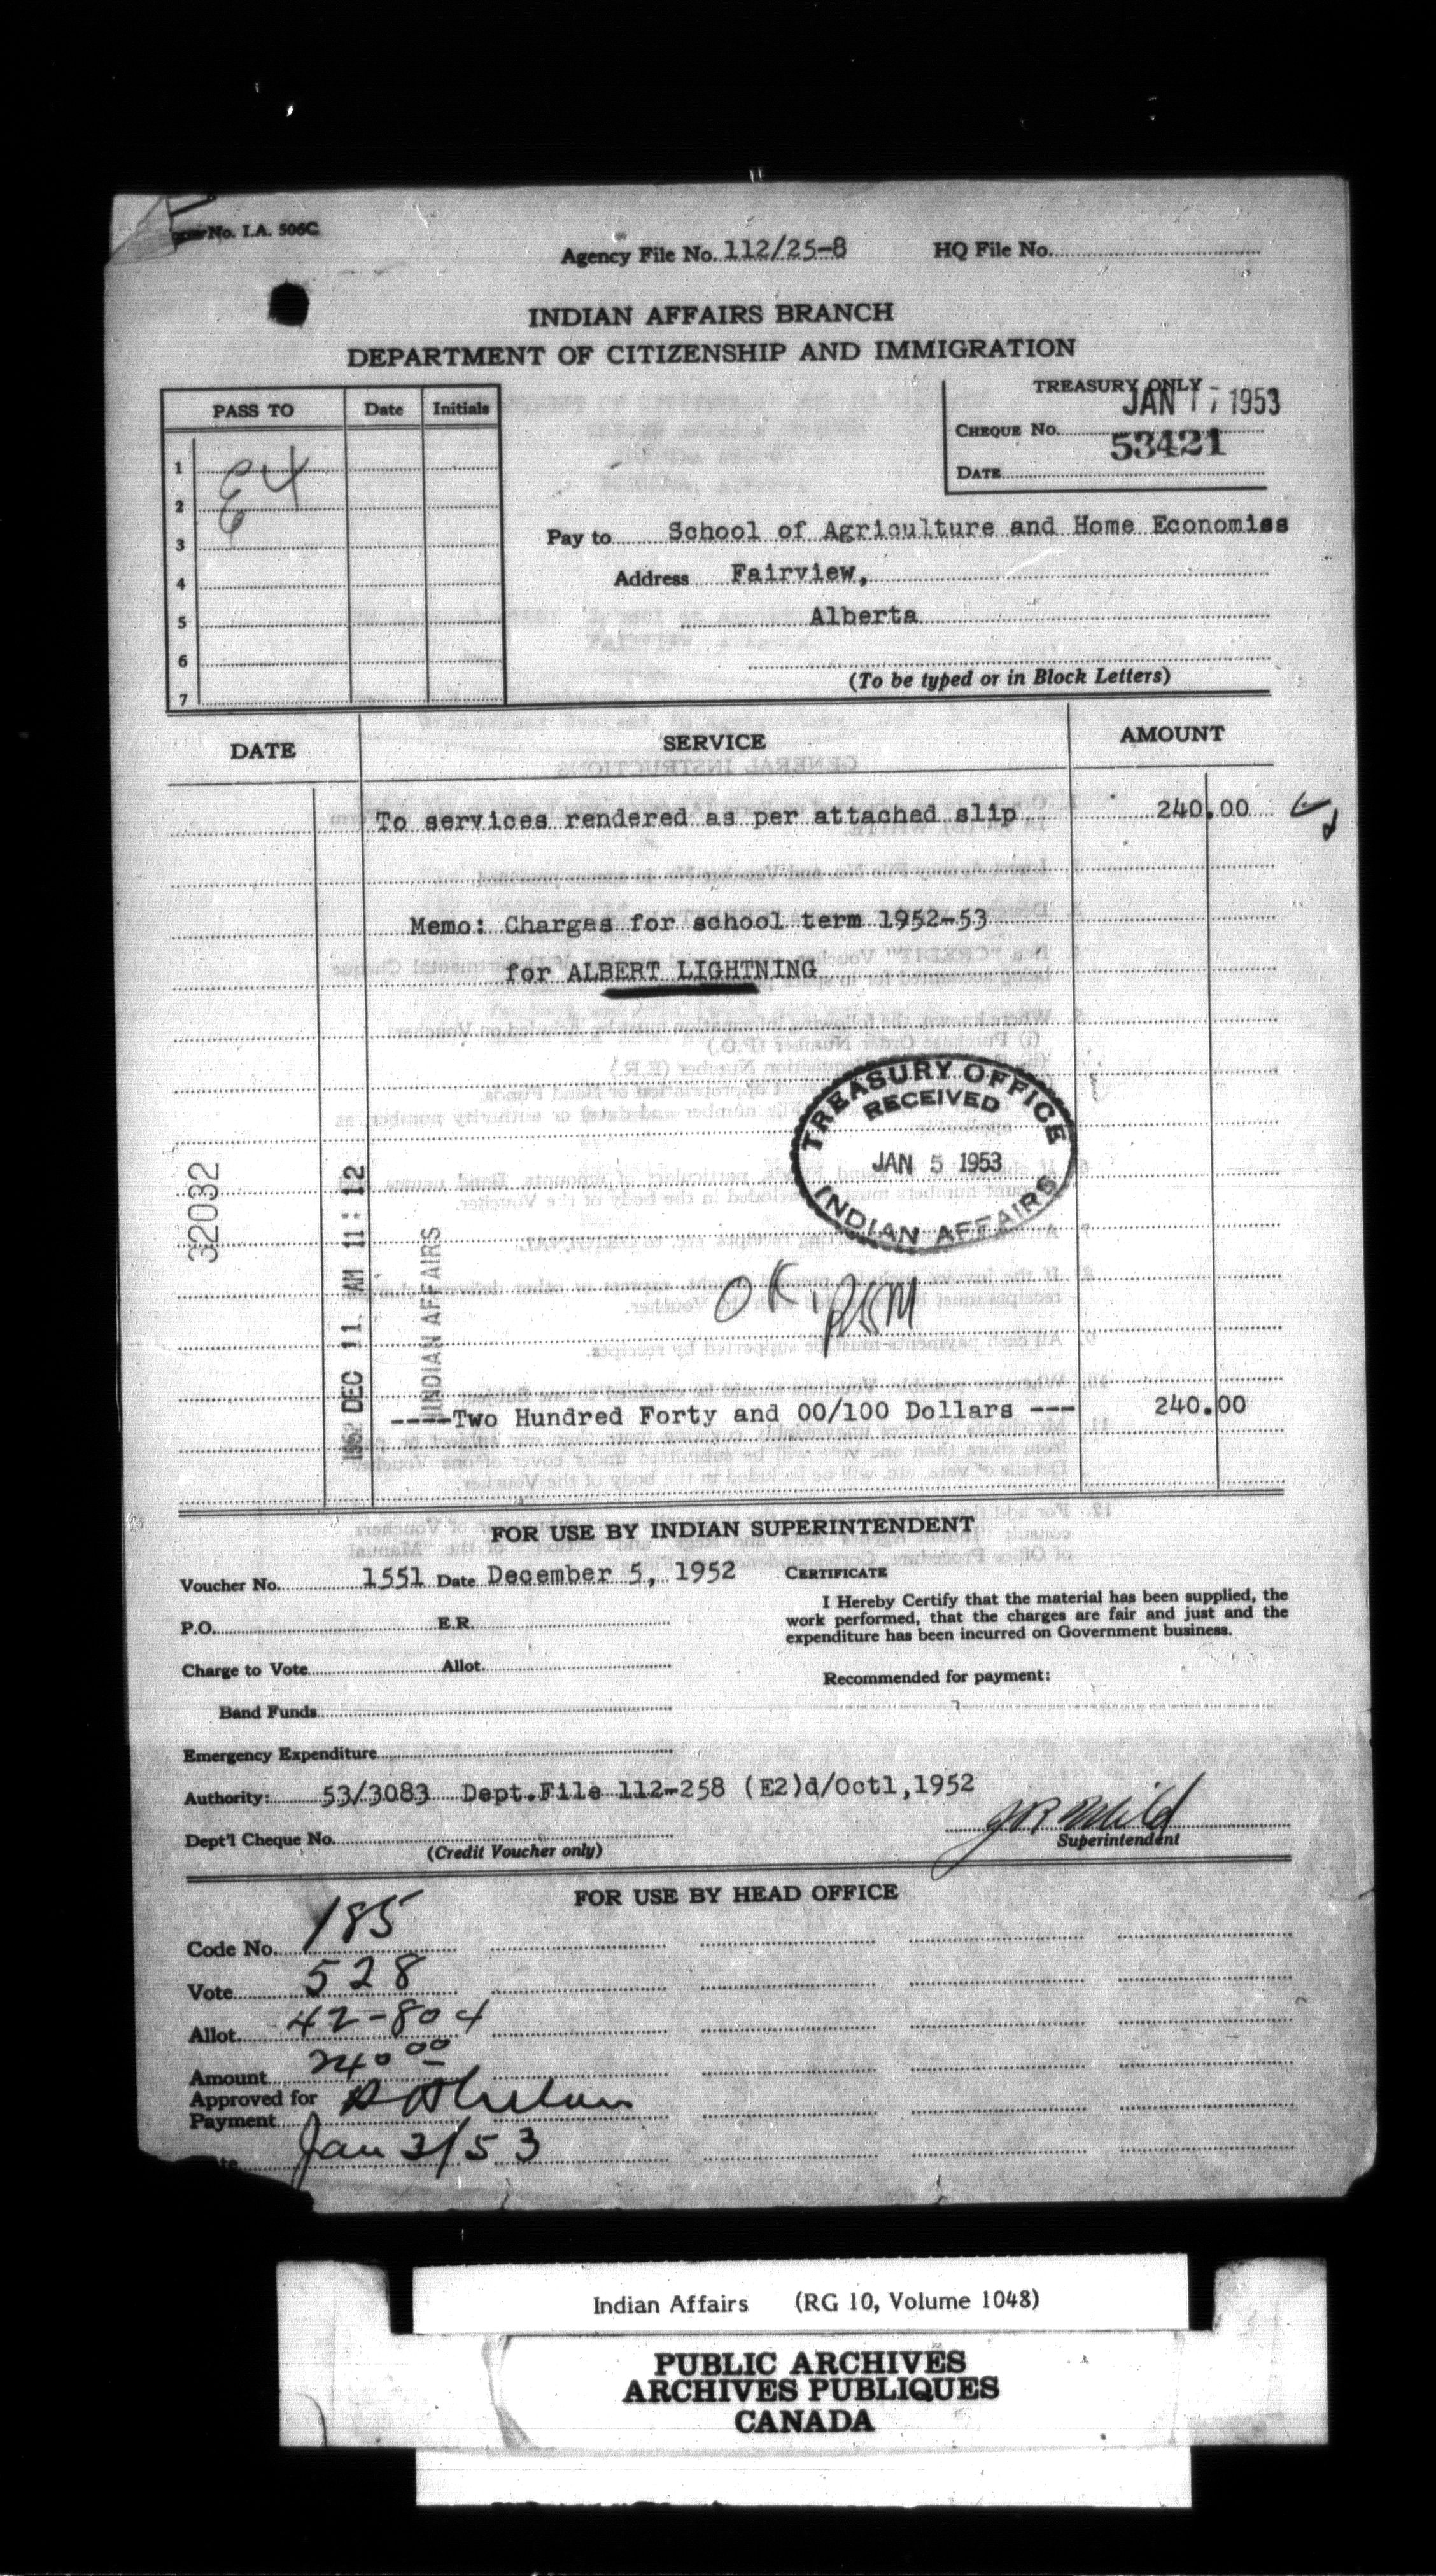 No. I.A. 506C
Agency File No. 112/25-8 HQ File No.
INDIAN AFFAIRS BRANCH
DEPARTMENT OF CITIZENSHIP AND IMMIGRATION
PASS TO Date Initials
1
2
3
4
5
6
7
TREASURY ONLY
JAN 17 1953
CHEQUE No. 53421
DATE
Pay to School of Agriculture and Home Economiss
Address Fairview,
Alberta
(To be typed or in Block Letters)
DATE SERVICE AMOUNT
To services rendered as per attached slip 240.00
Memo: Charges for school term 1952-53
for ALBERT LIGHTNING
TREASURY OFFICE
RECEIVED
JAN 5 1953
INDIAN AFFAIRS
32032
1952 DEC 11 AM 11:12
INDIAN AFFAIRS
OK
----Two Hundred Forty and 00/100 Dollars --- 240.00
FOR USE BY INDIAN SUPERINTENDENT
Voucher No. 1551 Date December 5, 1952
P.O. E.R.
Charge to Vote Allot.
Band Funds
Emergency Expenditure
Authority: 53/3083 Dept.File 112-258 (E2)d/Oct1,1952
Dept'l Cheque No.
(Credit Voucher only)
CERTIFICATE
I Hereby Certify that the material has been supplied, the
work performed, that the charges are fair and just and the
expenditure has been incurred on Government business.
Recommended for payment:
Superintendent
FOR USE BY HEAD OFFICE
Code No. 185
Vote 528
Allot. 42-804
Amount 240 00
Approved for
Payment
Jan 3/53
Indian Affairs (RG 10, Volume 1048)
PUBLIC ARCHIVES
ARCHIVES PUBLIQUES
CANADA